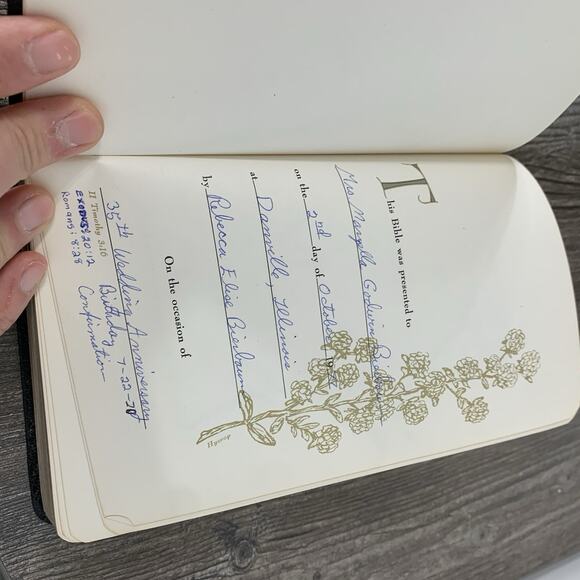 This Bible was presented to
Mrs Marzella Godwin
on the 2nd day of October
at Danville, Illinois
by Rebecca Elise Bierbaum
On the occasion of
35th Wedding Anniversary
Birthday 7-22-70
Confirmation
II Timothy 3:16
EXODUS: 20:12
Romans: 8:28